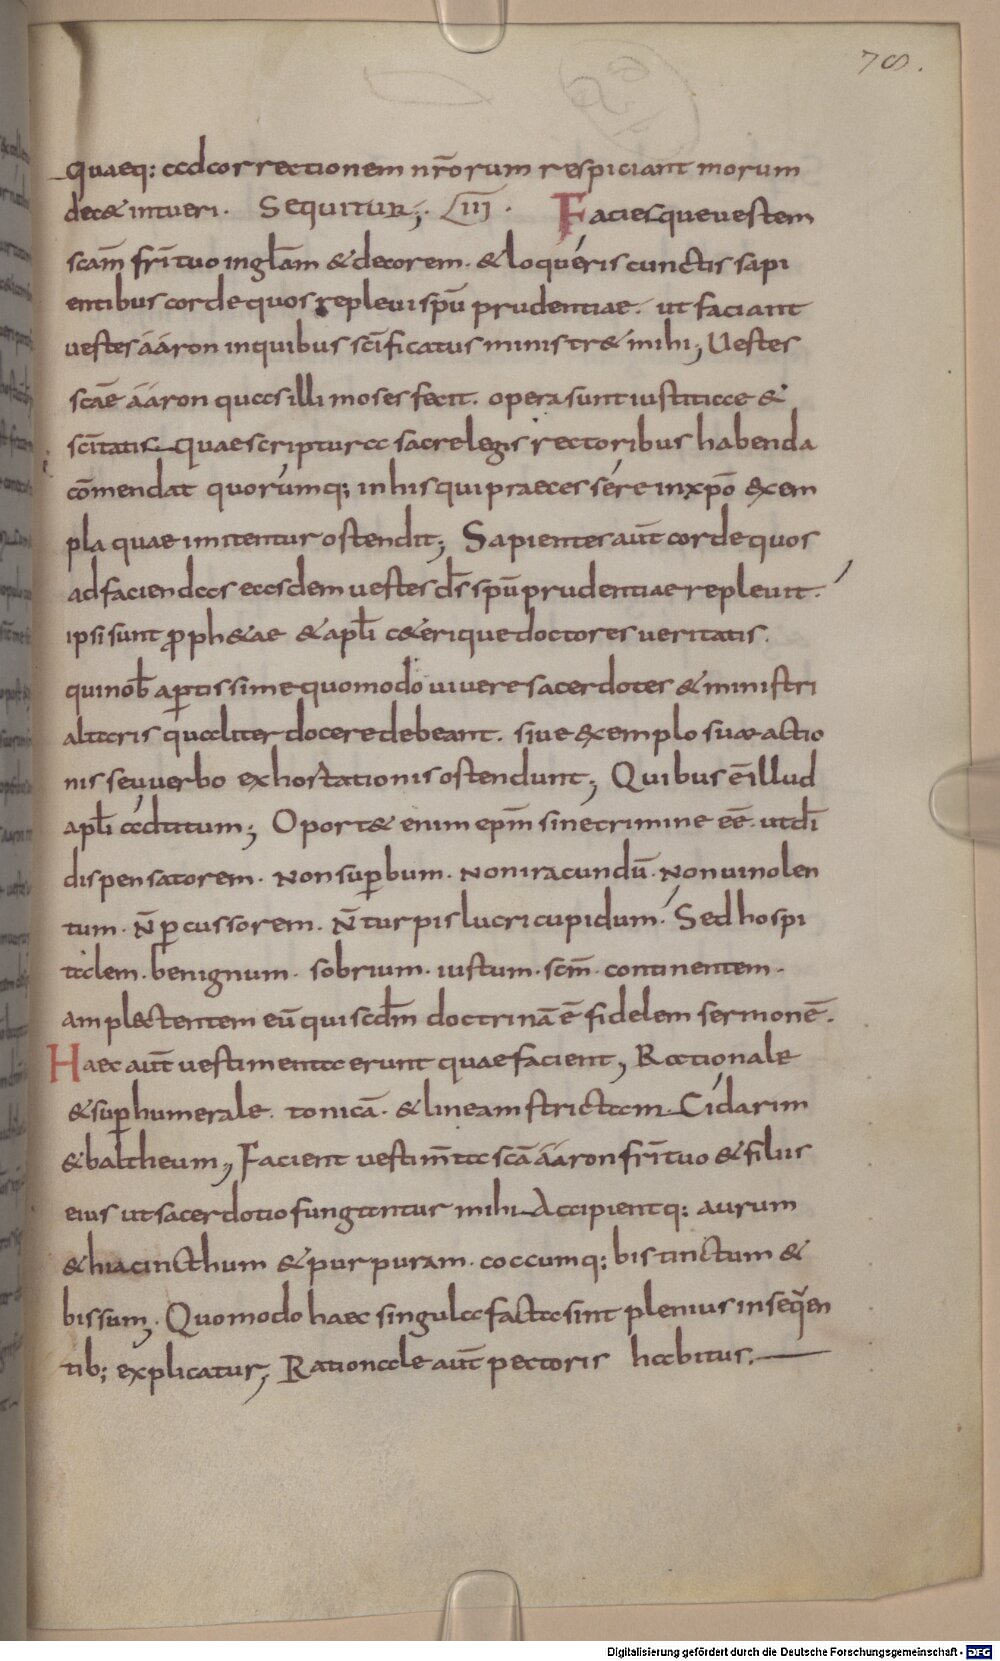 78.
quaeq: adcorrectionem nr̄orum respiciant morum
dec& intueri. Sequitur;. LIII. Faciesque uestem
scām fr̄i tuo in gl̄am & decorem. & loqueris cunctis sapi
entibus corde quos repleui sp̄u prudentiae. ut faciant
uestes ááron inquibus sc̄ificatus ministr& mihi; Uestes
scāe ááron quas illi moses fecit. opera sunt iustitiae &
sc̄itatis quae scriptura sacre legis rectoribus habenda
cōmendat quorumq; inhis qui praecessere in xp̄o exem
pla quae imitentur ostendit; Sapientes aūt corde quos
ad faciendas easdem uestes d̄s sp̄u prudentiae repleuit.
ipsi sunt proph&ae & apl̄i c&erique doctores ueritatis.
qui nob̄ apertissime quomodo uiuere sacerdotes & ministri
altaris qualiter docere debeant. siue exemplo suae actio
nis seu uerbo exhortationis ostendunt; Quibus ē illud
apl̄i additum; Oport& enim ep̄m sine crimine ēē. ut dī
dispensatorem. Non sup̱bum. Non iracundū. Non uinolen
tum. N̄ p̱cussorem. N̄ turpis lucri cupidum. Sed hospi
talem. benignum. sobrium. iustum. scm̄. continentem.
amplectentem eū qui scd̄m doctrinā ē fidelem sermonē.
Haec aūt uestimenta erunt quae facient; Rationale
& sup̱humerale. tonicā. & lineam strictam. Cidarim
& baltheum; Facient uestim̄ta scā ááron fr̄i tuo & filiis
eius ut sacerdotio fungantur mihi Accipientq: aurum
& hiacincthum & purpuram. coccumq: bis tinctum &
bissum;. Quomodo haec singula facta sint plenius in seq̄en
tib; explicatur; Rationale aūt pectoris habitus.
Digitalisierung gefördert durch die Deutsche Forschungsgemeinschaft - DFG